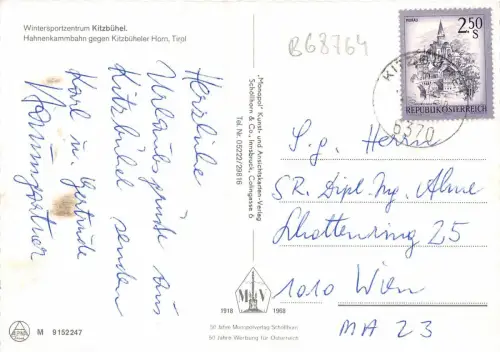 Wintersportzentrum Kitzbühel.
Hahnenkammbahn gegen Kitzbüheler Horn, Tirol
B68764
Herzliche
Urlaubsgrüße aus
Kitzbühel senden
Karl u. Gertrude
Naumgartner
"Monopol" Kunst- und Ansichtskarten-Verlag
Schöllhorn & Co., Innsbruck, Colingasse 6
Tel. Nr. 05222/29816
MURAU
2.50
S
REPUBLIK ÖSTERREICH
KITZBÜHEL
6370
S. g. Herrn
SR. Dipl. Ing.
Schottenring 25
1010 Wien
MA 23
M V
1918 1968
50 Jahre Monopolverlag Schöllhorn
50 Jahre Werbung für Österreich
M 9152247